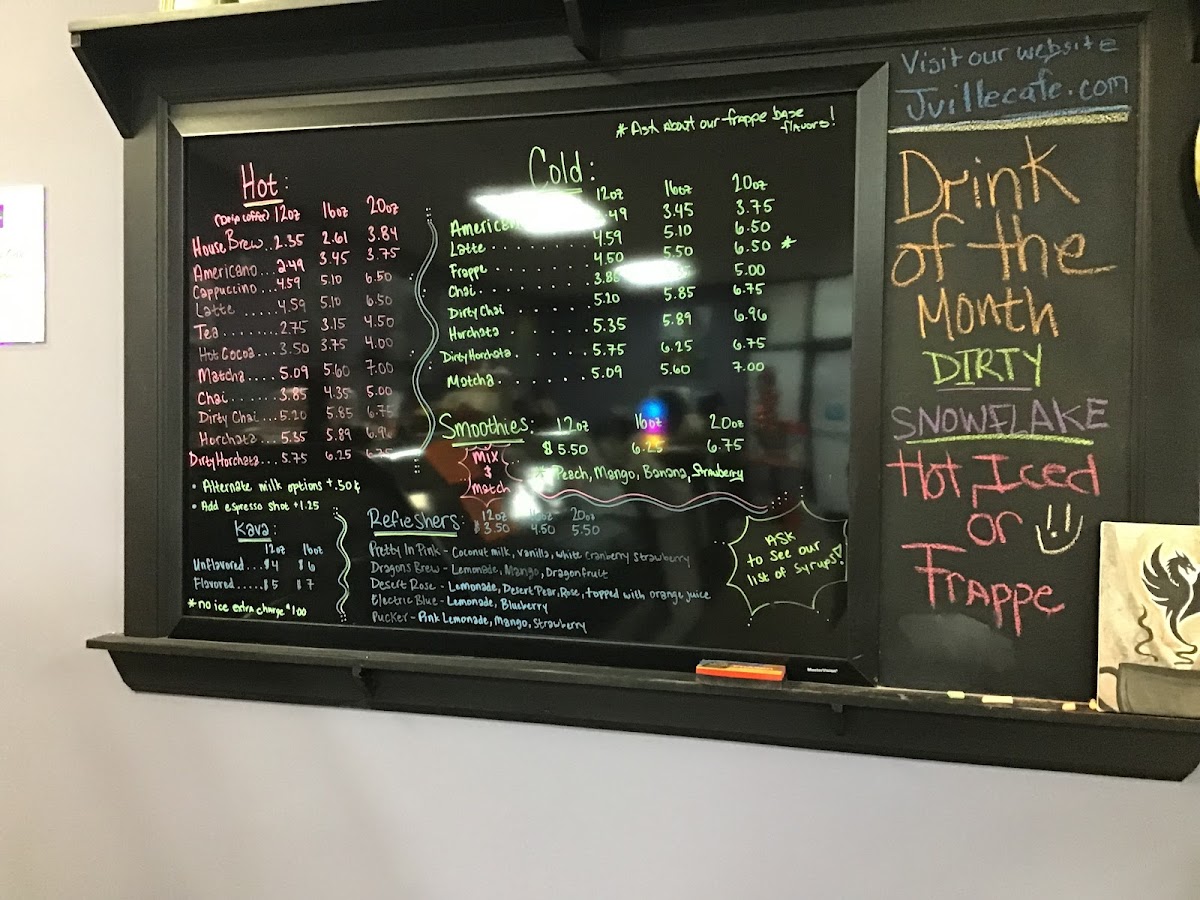 Visit our website
Jvillecafe.com
* Ask about our frappe base
flavors!
Hot:
(Drip coffee) 12oz 16oz 20oz
House Brew..2.35 2.61 3.84
Americano...2.49 3.45 3.75
Cappuccino...4.59 5.10 6.50
Latte.....4.59 5.10 6.50
Tea.......2.75 3.15 4.50
Hot Cocoa...3.50 3.75 4.00
Matcha.....5.09 5.60 7.00
Chai.......3.85 4.35 5.00
Dirty Chai...5.20 5.85 6.75
Horchata....5.35 5.89 6.96
Dirty Horchata...5.75 6.25 6.75
• Alternate milk options +.50¢
• Add espresso shot +1.25
Cold:
12oz 16oz 20oz
3.45 3.75
Latte........4.59 5.10 6.50
Frappe........4.50 5.50 6.50 *
Chai........ 5.00
Dirty Chai 5.20 5.85 6.75
Horchata........5.35 5.89 6.96
Dirty Horchata........5.75 6.25 6.75
Matcha........5.09 5.60 7.00
Smoothies: 12oz 16oz 20oz
$5.50 6.25 6.75
Mix
&
match
Peach, Mango, Banana, Strawberry
Kava:
12oz 16oz
Unflavored....$4 $6
Flavored.....$5 $7
* no ice extra charge $1.00
Refreshers: 12oz 16oz 20oz
$3.50 4.50 5.50
Pretty In Pink - Coconut milk, vanilla, white cranberry strawberry
Dragons Brew - Lemonade, Mango, Dragonfruit
Desert Rose - Lemonade, Desert Pear, Rose, topped with orange juice
Electric Blue - Lemonade, Blueberry
Pucker - Pink Lemonade, Mango, Strawberry
ASK
to see our
list of Syrups!
Drink
of the
Month
DIRTY
SNOWFLAKE
Hot, Iced
or
Frappe